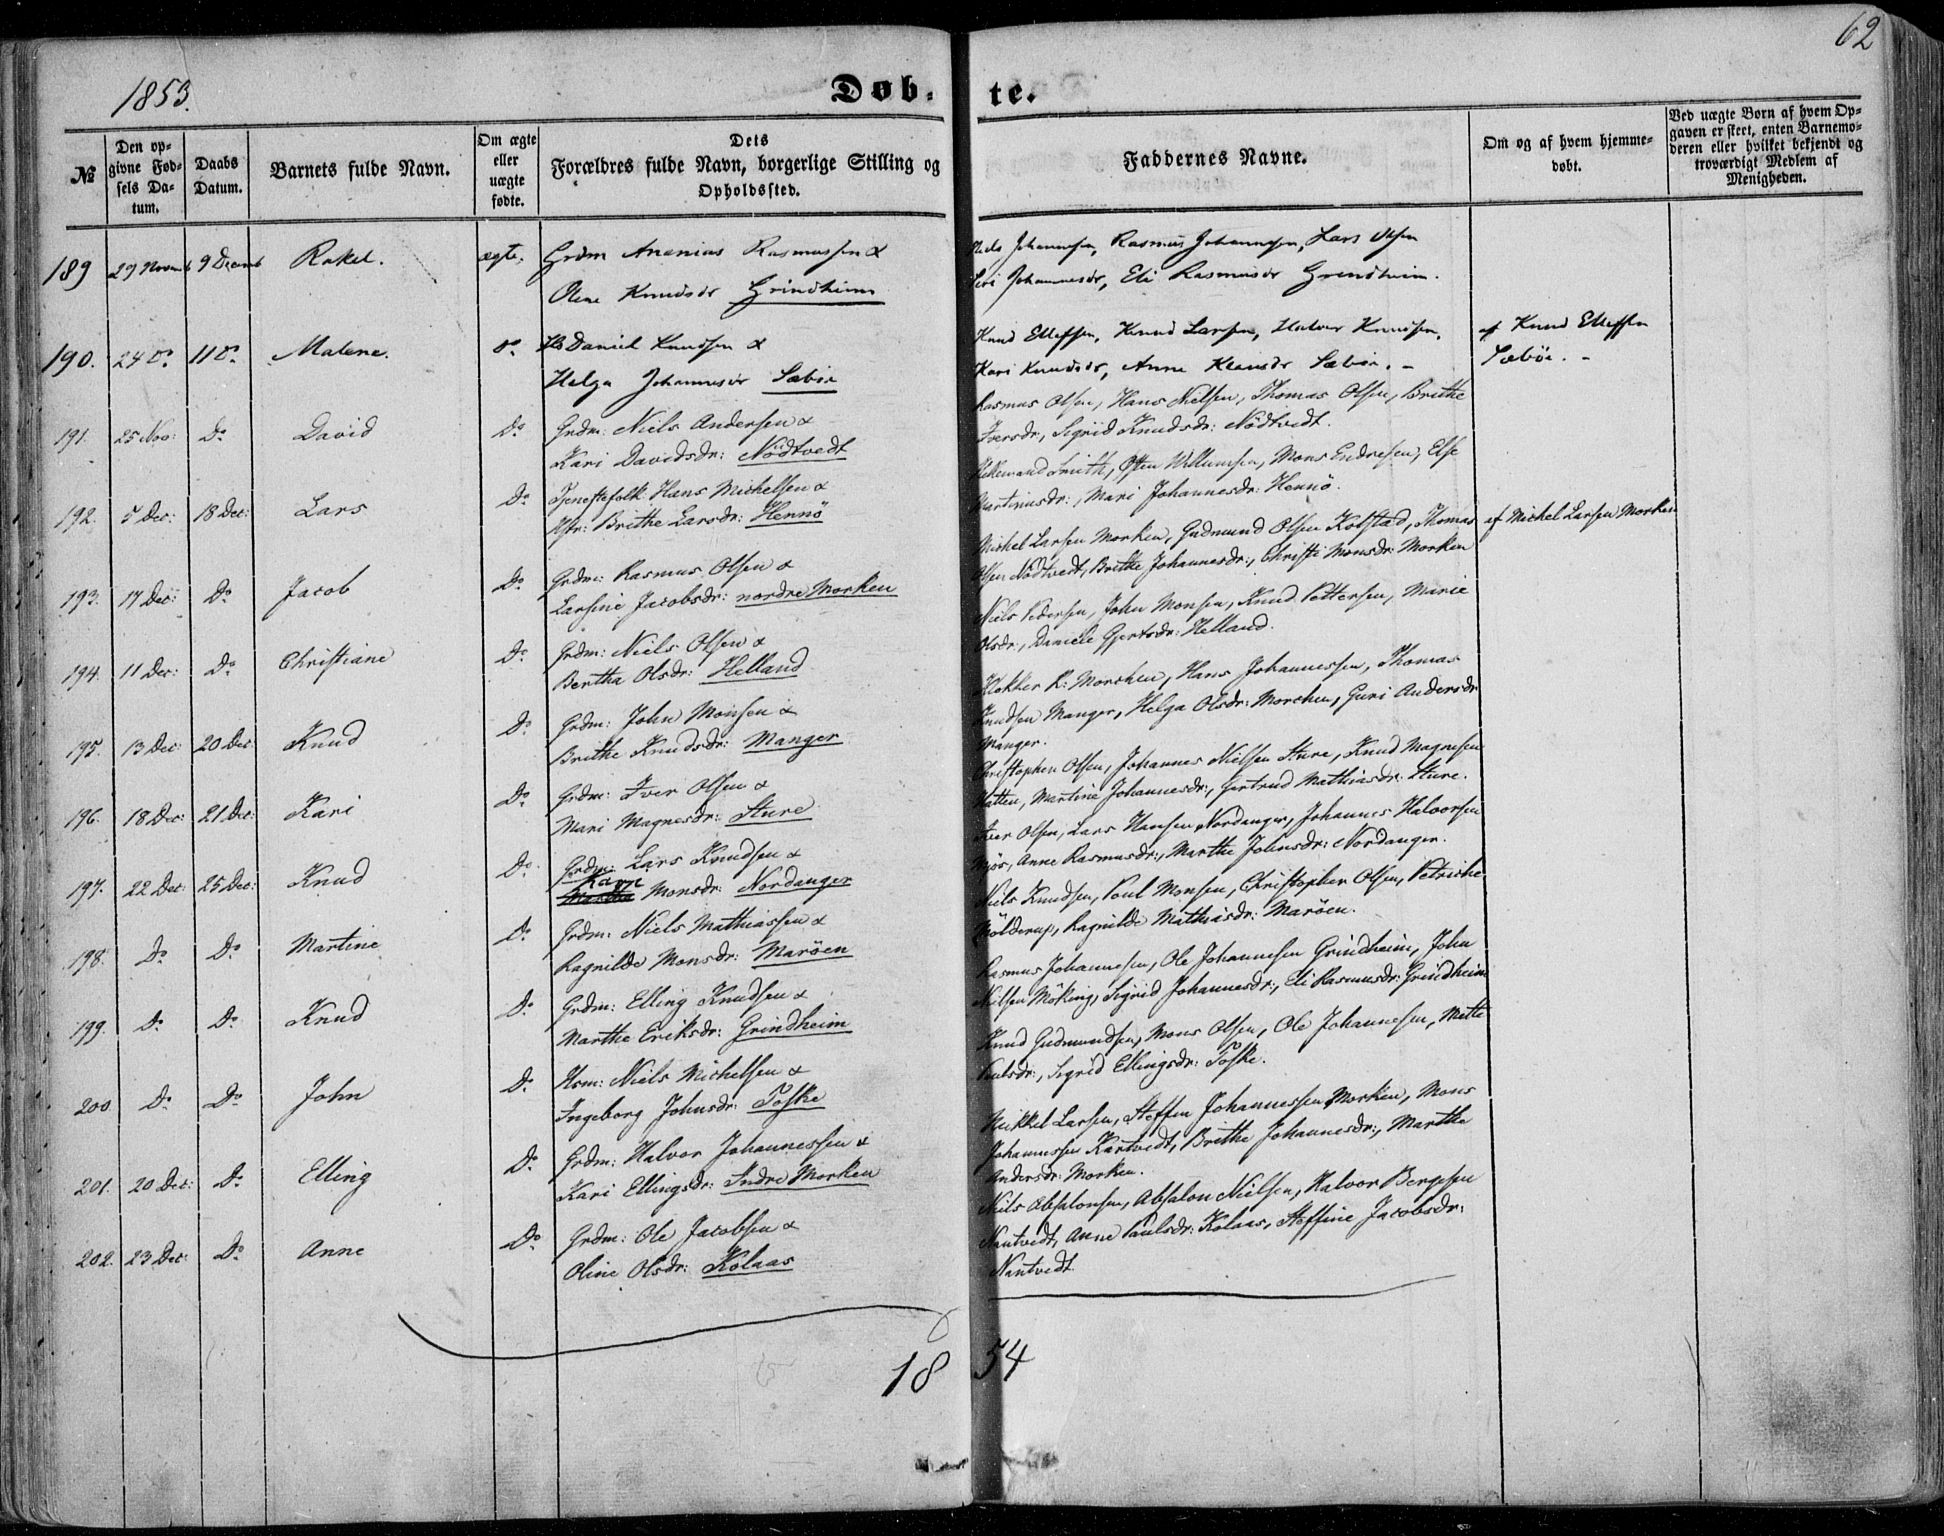 62
1853.
Døb-
te.
№ | Den opgivne Fødsels Datum. | Daabs Datum. | Barnets fulde Navn. | Om ægte eller uægte fødte. | Dets Forældres fulde Navn, borgerlige Stilling og Opholdssted. | Faddernes Navne. | Om og af hvem hjemmedøbt. | Ved uægte Børn af hvem Opgaven er skeet, enten Barnemoderen eller hvilket bekjendt og troværdigt Medlem af Menigheden.
189 29 Novemb 9 Decemb Rakel. ægte, Grdm Ananias Rasmussen &
Olene Knudsdr Grindheim
Niels Johannesen, Rasmus Johannesen, Lars Olsen
Siri Johannesdr, Eli Rasmusdr Grindheim.
190. 24 Do 11 Do Malene. Do Daniel Knudsen &
Helga Johannesdr Sæbøe
Knud Ellefsen, Knud Larsen, Halvor Knudsen,
Kari Knudsdr, Anne Klausdr Sæbøe. -
af Knud Ellefsen
Sæbøe. -
191. 25 Nov: Do David Do Grdm: Niels Andersen &
Kari Davidsdr: Nödtvedt
Rasmus Olsen, Hans Nielsen, Thomas Olsen, Brithe
Iversdr, Sigrid Knudsdr: Nödtvedt.
192. 5 Dec: 18 Dec: Lars Do Tjenestefolk Hans Michelsen &
Brithe Larsdr: Hennö
Smith, Willumsen, Mons Endresen, Else
Martinusdr:, Mari Johannesdr: Hennö.
193. 17 Dec: Do Jacob Do Grdm: Rasmus Olsen &
Larsine Jacobsdr: nordre Morken
Michel Larsen Morken, Gudmund Olsen Kolstad, Thomas
Olsen Nödtvedt, Brithe Johannesdr:, Christi Monsdr: Morken
af Michel Larsen Morken
194. 11 Dec: Do Christiane Do Grdm: Niels Olsen &
Bertha Olsdr: Helland
Niels Pedersen, John Monsen, Knud Pettersen, Marie
Olsdr:, Daniele Gjertsdr: Helland.
195. 13 Dec: 20 Dec: Knud Do Grdm: John Monsen &
Brithe Knudsdr: Manger
Klokker R: Morchen, Hans Johannessen, Thomas
Knudsen Manger, Helga Olsdr: Morchen, Guri Andersdr:
Manger.
196. 18 Dec: 21 Dec: Kari Do Grdm: Iver Olsen &
Mari Magnesdr: Sture
Christopher Olsen, Johannes Nielsen Sture, Knud Magnesen
Hatten, Martine Johannesdr:, Gertrud Mathiasdr: Sture.
197. 22 Dec: 25 Dec: Knud Do Grdm: Lars Knudsen &
Kari Monsdr: Nordanger
Iver Olsen, Lars Hansen Nordanger, Johannes Halvorsen
Mjøs, Anne Rasmusdr:, Marthe Johnsdr: Nordanger.
198. Do Do Martine Do Grdm: Niels Mathiassen &
Ragnilde Monsdr: Maröen
Niels Knudsen, Poul Monsen, Christopher Olsen, Petriche
Mölderup, Ragnilde Mathiasdr: Maröen.
199. Do Do Knud Do Grdm: Elling Knudsen &
Marthe Eriksdr: Grindheim
Rasmus Johannesen, Ole Johannesen Grindheim, John
Nilsen Möking, Sigrid Johannesdr:, Eli Rasmusdr: Grindheim
200. Do Do John Do Hsm: Niels Michelsen &
Ingeborg Johnsdr: Toske
Knud Gudmundsen, Mons Olsen, Ole Johannesen, Mette
Paulsdr:, Sigrid Ellingsdr: Toske.
201. 20 Dec: Do Elling Do Grdm: Halvor Johannessen &
Kari Ellingsdr: Indre Morken
Mikkel Larsen, Steffen Johannessen Morken, Mons
Johannessen Kartvedt, Brithe Johannesdr:, Marthe
Andersdr: Morken.
202. 23 Dec: Do Anne Do Grdm: Ole Jacobsen &
Oline Olsdr: Kolaas
Niels Absalonsen, Absalon Nielsen, Halvor Bergesen
Nautvedt, Anne Paulsdr: Kolaas, Steffine Jacobsdr:
Nautvedt
1854